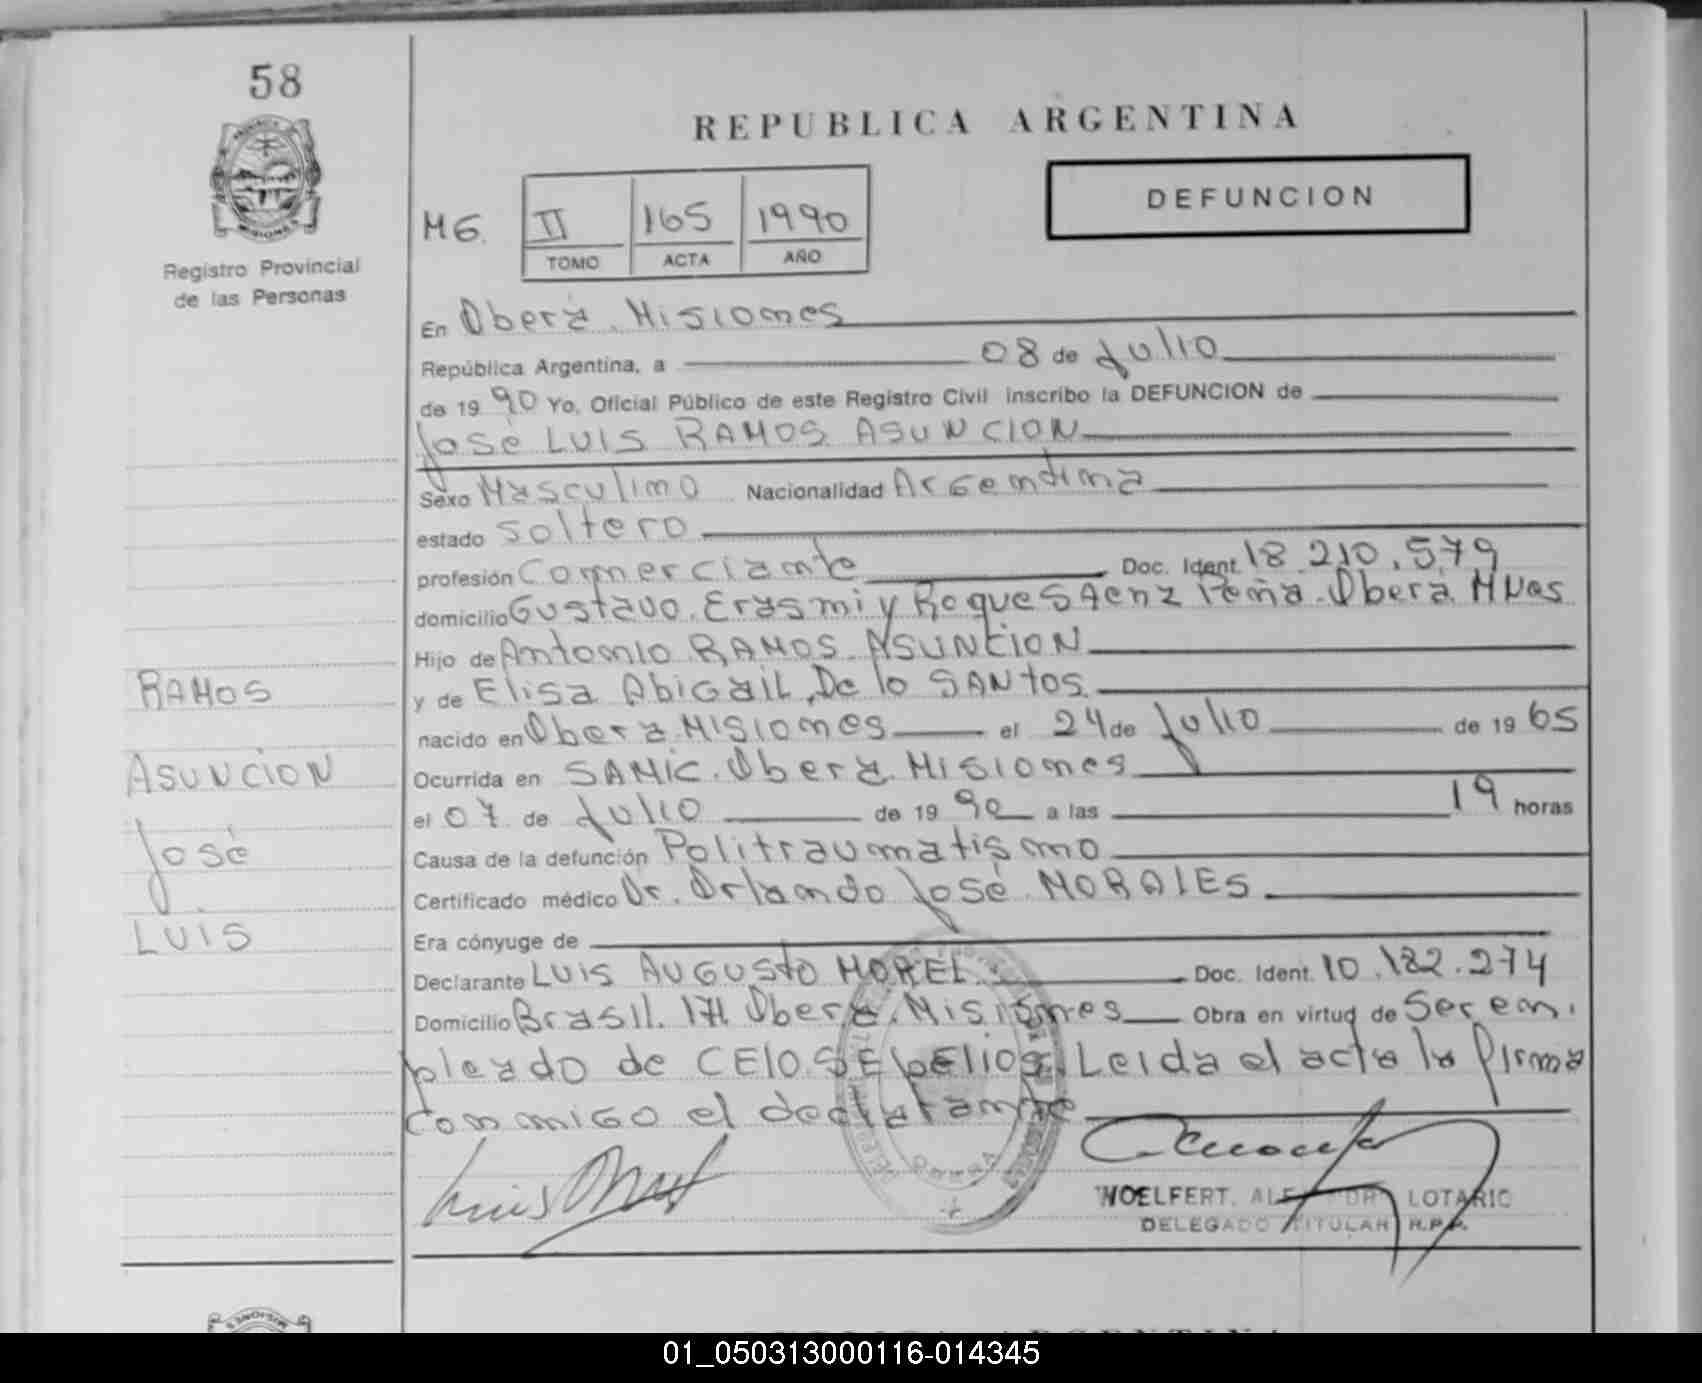 58
REPUBLICA ARGENTINA
DEFUNCION
M6. II 165 1990
TOMO ACTA AÑO
Registro Provincial
de las Personas
En Oberá. Misiones
República Argentina, a 08 de Julio
de 1990 Yo, Oficial Público de este Registro Civil inscribo la DEFUNCION de
José LUIS RAMOS ASUNCION
Sexo Masculino Nacionalidad Argentina
estado soltero
profesión Comerciante Doc. Ident. 18.210.579
domicilio Gustavo. Erasmi y Roque SAenz Peña. Oberá. MNes
Hijo de Antonio RAMOS ASUNCION
y de Elisa Abigail De lo SANtos
nacido en Oberá Misiones el 24 de Julio de 1965
Ocurrida en SAMIC. Oberá Misiones
el 07 de Julio de 1990 a las 19 horas
Causa de la defunción Politraumatismo
Certificado médico Dr. Orlando José MORALES
Era cónyuge de
Declarante LUIS AUGUSTO MOREL Doc. Ident. 10.182.274
Domicilio Brasil. 171 Oberá. Misiones Obra en virtud de Ser em.
pleado de CELO. SEpelios. Leida el acta la firma
conmigo el declarante
RAMOS
ASUNCION
José
LUIS
WOELFERT. LOTARIO
DELEGADO TITULAR R.P.P.
OBERA
MISIONES
01_050313000116-014345